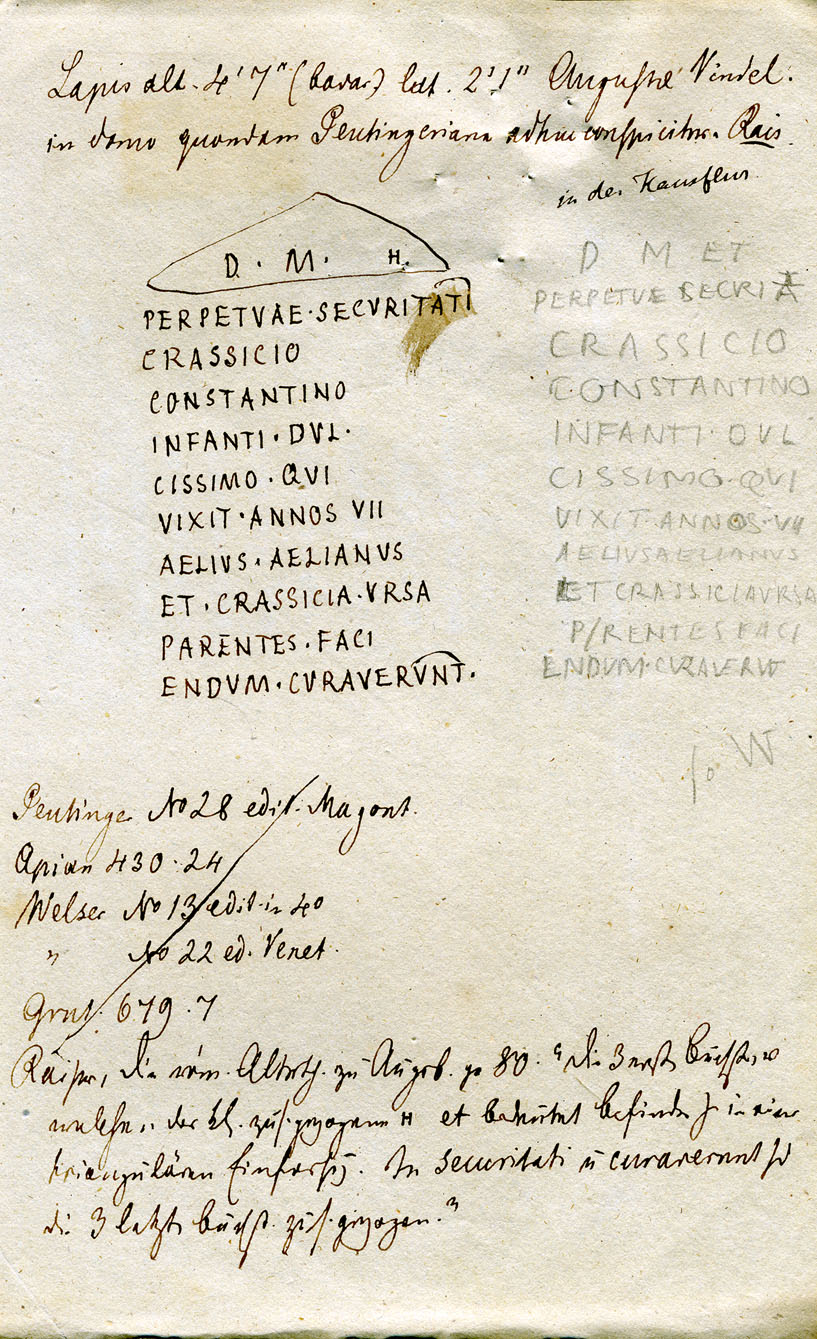 Lapis alt. 4' 7" (bavar) lat. 2' 1" Augustae Vindel.
in domo quondam Peutingeriana adhuc conspicitur. Rais.
in der Hausflur
D. M. H.
PERPETVAE·SECVRITATI
CRASSICIO
CONSTANTINO
INFANTI·DVL·
CISSIMO·QVI
VIXIT·ANNOS VII
AELIVS·AELIANVS
ET·CRASSICIA·VRSA
PARENTES·FACI
ENDVM·CVRAVERVNT.
D M ET
PERPETVE SECVRI
CRASSICIO
CONSTANTINO
INFANTI·DVL
CISSIMO·QVI
VIXIT·ANNOS·VII
AELIVSAELIANVS
ET CRASSICIAVRSA
P/RENTES FACI
ENDVM·CVRAVERVNT
so W
Peutinger No 28 edit. Magont.
Apian 430·24
Welser No 13 edit. in 4o
" No 22 ed. Venet.
Grut. 679·7
Raiser, die röm. Alterth. zu Augsb. p. 80. "die 3 erst. Buchst.,
welche der zus.gezogene H et bedeutet befinden s. in einer
triangulären Einfassg. In securitati u curaverunt sd
die 3 letzt. Buchst. zus.gezogen."